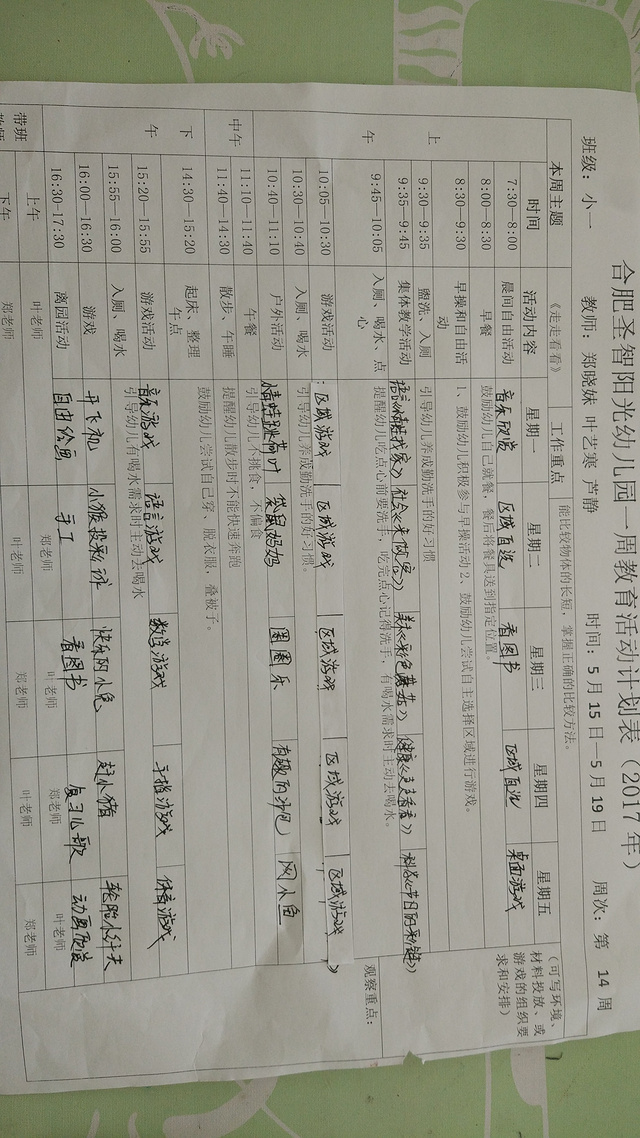 合肥圣智阳光幼儿园一周教育活动计划表（2017年）
班级：小一 教师：郑晓妹 叶艺寒 芦静 时间：5月15日—5月19日 周次：第 14 周
本周主题 《走走看看》 工作重点 能比较物体的长短，掌握正确的比较方法。
时间 活动内容 星期一 星期二 星期三 星期四 星期五 （可写环境、材料投放、或游戏的组织要求和安排）
上午
7:30—8:00 晨间自由活动 音乐欣赏 区域自选 看图书 区域自选 桌面游戏
8:00—8:30 早餐 鼓励幼儿自己就餐，餐后将餐具送到指定位置。
8:30—9:30 早操和自由活动 1、鼓励幼儿积极参与早操活动2、鼓励幼儿尝试自主选择区域进行游戏。
9:30—9:35 盥洗、入厕 引导幼儿养成勤洗手的好习惯
9:35—9:45 集体教学活动 语言 找家》 社会《来做客》 美术《彩色蘑菇》 健康《走走看看》 科学《节日的彩链》
9:45—10:05 入厕、喝水、点心 提醒幼儿吃点心前要洗手，吃完点心记得洗手，有喝水需求时主动去喝水。
10:05—10:30 游戏活动 区域游戏 区域游戏 区域游戏 区域游戏 区域游戏
10:30—10:40 入厕、喝水 引导幼儿养成勤洗手的好习惯。
10:40—11:10 户外活动 青蛙跳荷叶 袋鼠妈妈 圈圈乐 有趣的沙包 网小鱼
观察重点：
中午
11:10—11:40 午餐 引导幼儿不挑食，不偏食
11:40—14:30 散步、午睡 提醒幼儿散步时不能快速奔跑
下午
14:30—15:20 起床、整理午点 鼓励幼儿尝试自己穿、脱衣服，叠被子。
15:20—15:55 游戏活动 音乐游戏 语言游戏 数学游戏 手指游戏 体育游戏
15:55—16:00 入厕、喝水 引导幼儿有喝水需求时主动去喝水
16:00—16:30 游戏 开飞机 小猴投彩球 快乐的小兔 赶小猪 轮胎小纤夫
16:30—17:30 离园活动 自由绘画 手工 看图书 复习儿歌 动画欣赏
带班教师 上午 叶老师 郑老师 叶老师 郑老师 叶老师
下午 郑老师 叶老师 郑老师 叶老师 郑老师